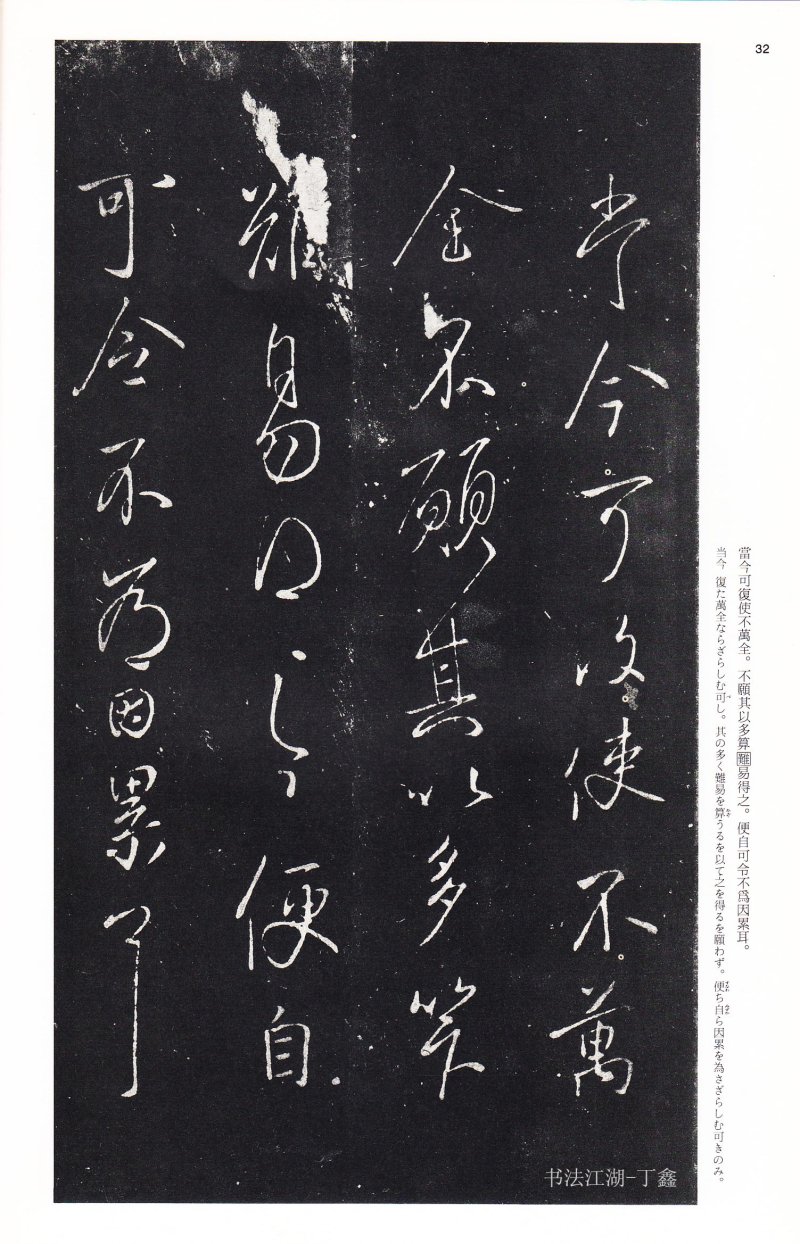 32
當今可復使不萬全。不願其以多算難易得之。便自可令不爲因累耳。
当今 復た萬全ならざらしむ可し。其の多く難易を算うるを以て之を得るを願わず。便ち自ら因累を為さざらしむ可きのみ。
當今可復使不萬
全不願其以多算
難易得之便自
可令不爲因累耳
书法江湖-丁鑫